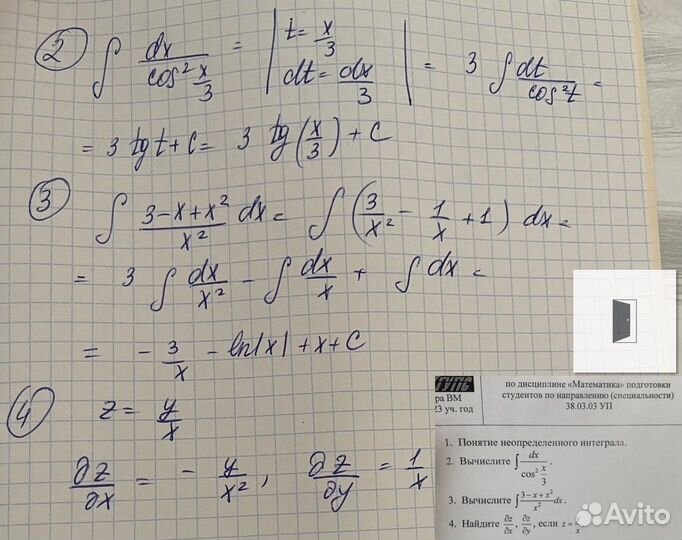 2) ∫ dx / cos² x/3 = | t = x/3, dt = dx/3 | = 3 ∫ dt / cos²t =
= 3 tg t + C = 3 tg(x/3) + C
3) ∫ (3-x+x²) / x² dx = ∫ (3/x² - 1/x + 1) dx =
= 3 ∫ dx/x² - ∫ dx/x + ∫ dx =
= - 3/x - ln|x| + x + C
4) z = y/x
∂z/∂x = - y/x², ∂z/∂y = 1/x
ра ВМ
23 уч. год
по дисциплине «Математика» подготовки
студентов по направлению (специальности)
38.03.03 УП
1. Понятие неопределенного интеграла.
2. Вычислите ∫ dx / cos² x/3.
3. Вычислите ∫ (3-x+x²) / x² dx.
4. Найдите ∂z/∂x, ∂z/∂y, если z = /x
Avito